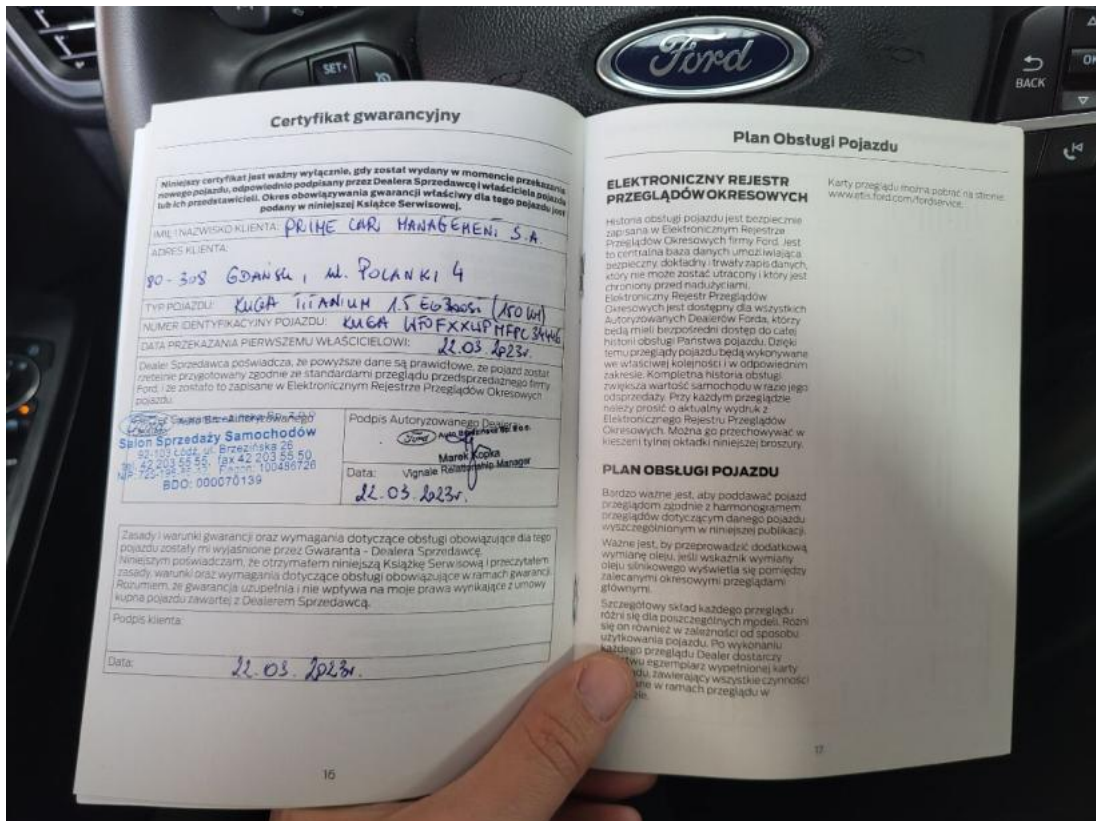 SET+
Ford
BACK
OK
Certyfikat gwarancyjny
Niniejszy certyfikat jest ważny wyłącznie, gdy został wydany w momencie przekazania
nowego pojazdu, odpowiednio podpisany przez Dealera Sprzedawcę i właściciela pojazdu
lub ich przedstawicieli. Okres obowiązywania gwarancji właściwy dla tego pojazdu jest
podany w niniejszej Książce Serwisowej.
IMIĘ I NAZWISKO KLIENTA: PRIME CAR MANAGEMENT S.A.
ADRES KLIENTA:
80-308 GDAŃSK, ul. POLANKI 4
TYP POJAZDU: KUGA TITANIUM 1.5 (150 KM)
NUMER IDENTYFIKACYJNY POJAZDU: KUGA
DATA PRZEKAZANIA PIERWSZEMU WŁAŚCICIELOWI: 22.03.2023r.
Dealer Sprzedawca poświadcza, że powyższe dane są prawidłowe, że pojazd został
rzetelnie przygotowany zgodnie ze standardami przeglądu przedsprzedażnego firmy
Ford, i że zostało to zapisane w Elektronicznym Rejestrze Przeglądów Okresowych
pojazdu.
Salon Sprzedaży Samochodów
92-103 Łódź, ul. Brzezińska 26
fax 42 203 55 50
100486726
BDO: 000070139
Podpis Autoryzowanego Dealera
Ford
Marek Kopka
Vignale Relationship Manager
Data:
22.03.2023r.
Zasady i warunki gwarancji oraz wymagania dotyczące obsługi obowiązujące dla tego
pojazdu zostały mi wyjaśnione przez Gwaranta - Dealera Sprzedawcę.
Niniejszym poświadczam, że otrzymałem niniejszą Książkę Serwisową i przeczytałem
zasady, warunki oraz wymagania dotyczące obsługi obowiązujące w ramach gwarancji.
Rozumiem, że gwarancja uzupełnia i nie wpływa na moje prawa wynikające z umowy
kupna pojazdu zawartej z Dealerem Sprzedawcą.
Podpis klienta:
Data: 22.03.2023r.
16
Plan Obsługi Pojazdu
ELEKTRONICZNY REJESTR
PRZEGLĄDÓW OKRESOWYCH
Historia obsługi pojazdu jest bezpiecznie
zapisana w Elektronicznym Rejestrze
Przeglądów Okresowych firmy Ford. Jest
to centralna baza danych umożliwiająca
bezpieczny, dokładny i trwały zapis danych,
który nie może zostać utracony i który jest
chroniony przed nadużyciami.
Elektroniczny Rejestr Przeglądów
Okresowych jest dostępny dla wszystkich
Autoryzowanych Dealerów Forda, którzy
będą mieli bezpośredni dostęp do całej
historii obsługi Państwa pojazdu. Dzięki
temu przeglądy pojazdu będą wykonywane
we właściwej kolejności i w odpowiednim
zakresie. Kompletna historia obsługi
zwiększa wartość samochodu w razie jego
odsprzedaży. Przy każdym przeglądzie
należy prosić o aktualny wydruk z
Elektronicznego Rejestru Przeglądów
Okresowych. Można go przechowywać w
kieszeni tylnej okładki niniejszej broszury.
PLAN OBSŁUGI POJAZDU
Bardzo ważne jest, aby poddawać pojazd
przeglądom zgodnie z harmonogramem
przeglądów dotyczącym danego pojazdu
wyszczególnionym w niniejszej publikacji.
Ważne jest, by przeprowadzić dodatkową
wymianę oleju, jeśli wskaźnik wymiany
oleju silnikowego wyświetla się pomiędzy
zalecanymi okresowymi przeglądami
głównymi.
Szczegółowy skład każdego przeglądu
różni się dla poszczególnych modeli. Różni
się on również w zależności od sposobu
użytkowania pojazdu. Po wykonaniu
każdego przeglądu Dealer dostarczy
egzemplarz wypełnionej karty
zawierający wszystkie czynności
w ramach przeglądu w
Karty przeglądu można pobrać na stronie:
www.etis.ford.com/fordservice.
17